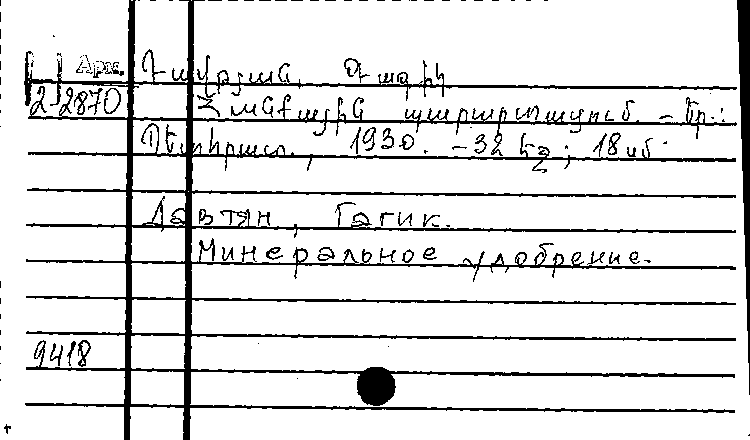 Арм. Դավթյան, Գագիկ
2-2870 Հանքային պարարտացում. - Եր.:
Պետհրատ., 1930. - 32 էջ; 18 սմ.
Давтян, Гагик.
Минеральное удобрение.
9418